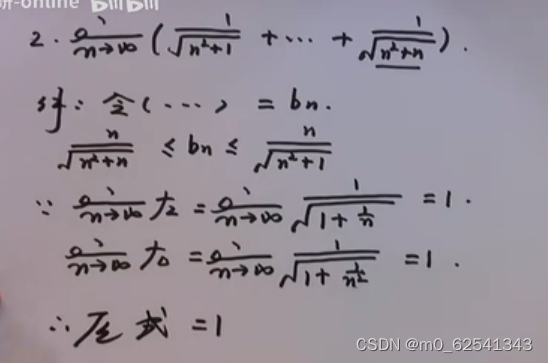 研-online bilibili
2. lim n→∞ ( 1/√(n²+1) + ⋯ + 1/√(n²+n) ).
解: 令(⋯) = bn.
n/√(n²+n) ≤ bn ≤ n/√(n²+1)
∵ lim n→∞ 左 = lim n→∞ 1/√(1+1/n) = 1.
lim n→∞ 右 = lim n→∞ 1/√(1+1/n²) = 1.
∴ 原式 = 1
CSDN @m0_62541343